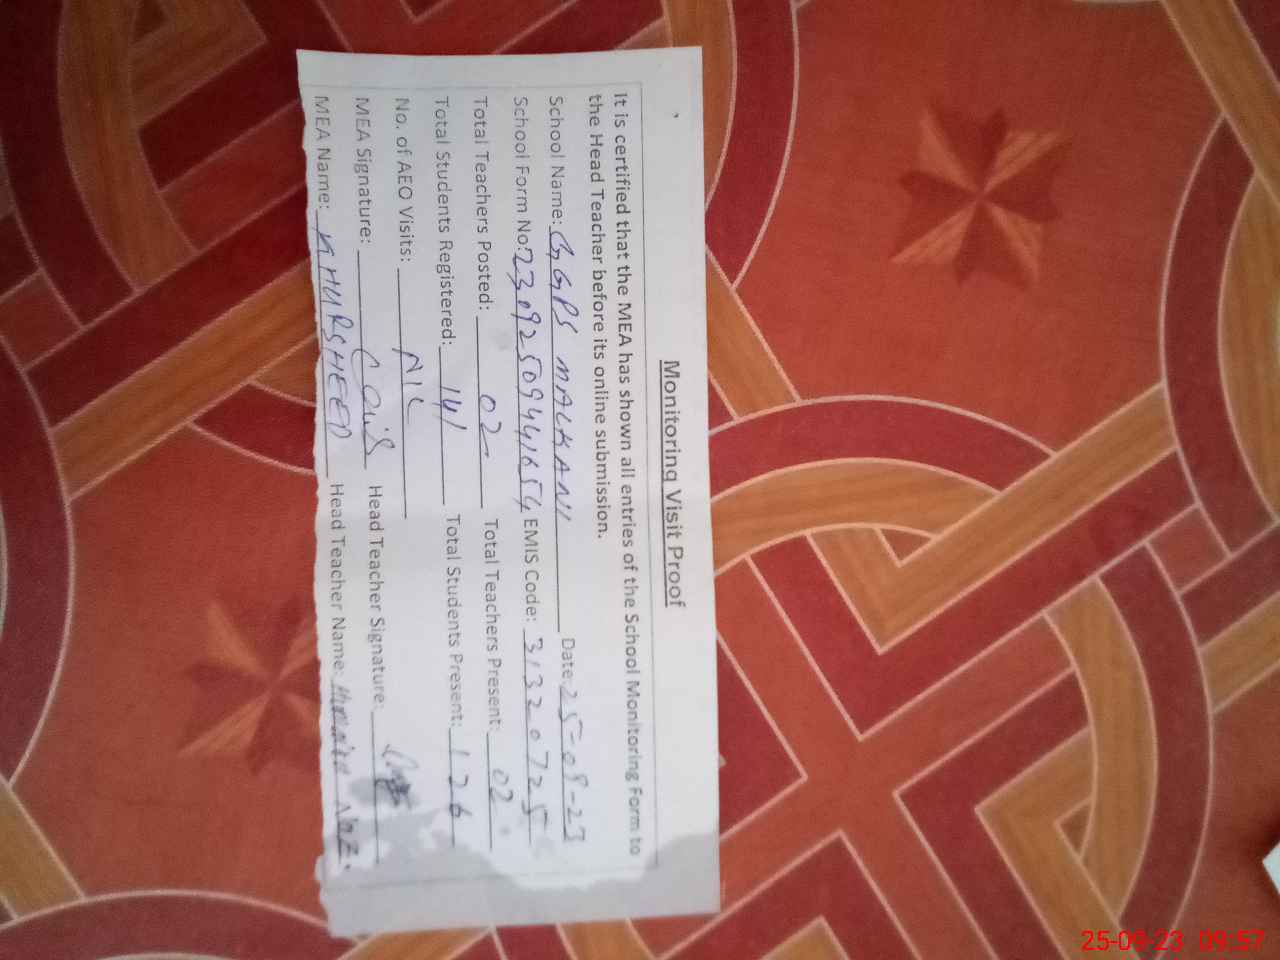 Monitoring Visit Proof
It is certified that the MEA has shown all entries of the School Monitoring Form to
the Head Teacher before its online submission.
School Name: GGPS MALKANI Date: 25-09-23
School Form No: 230925094441654 EMIS Code: 31320725
Total Teachers Posted: 02 Total Teachers Present: 02
Total Students Registered: 141 Total Students Present: 126
No. of AEO Visits: NIL
MEA Signature: Head Teacher Signature:
MEA Name: KHURSHEED Head Teacher Name: Naz.
25-09-23 09:57